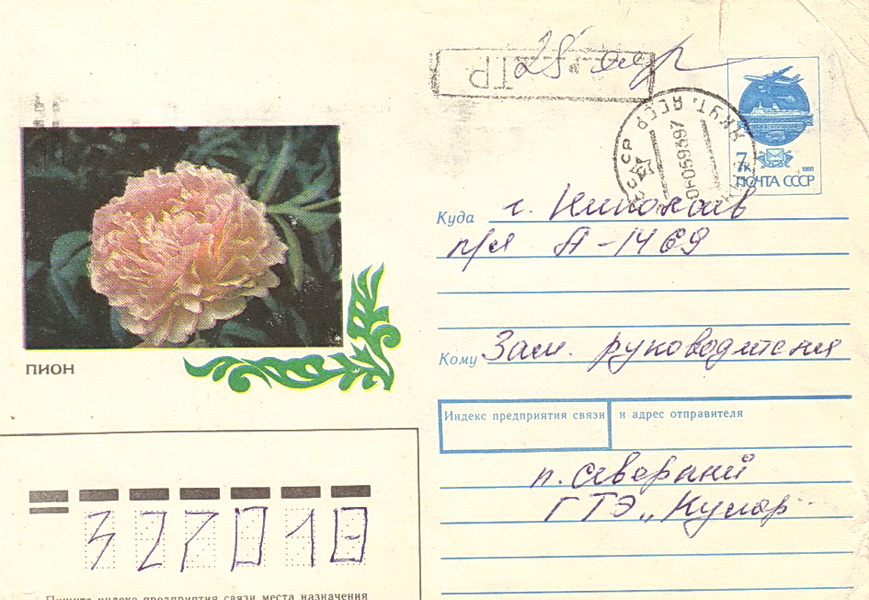 28 апр
ТР
ЯКУТ. ЯССР
060593
7к
1991
ПОЧТА СССР
Куда г. Николаев
п/я А-1469
Кому Зам. руководителя
ПИОН
Индекс предприятия связи и адрес отправителя
п. Северный
ГТЭ „Кулар
327018
Пишите индекс предприятия связи места назначения